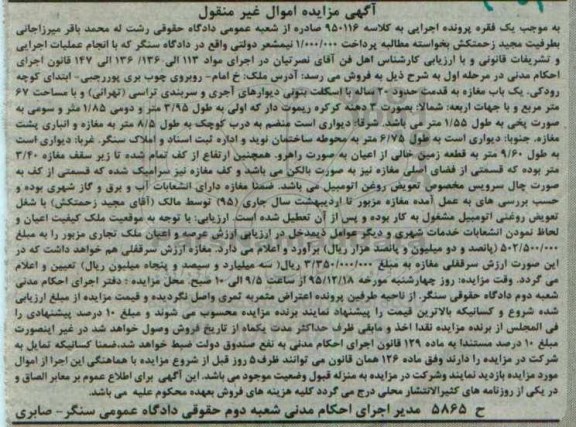 آگهی مزایده اموال غیر منقول
به موجب یک فقره پرونده اجرایی به کلاسه ۹۵۰۱۱۶ صادره از شعبه عمومی دادگاه حقوقی رشت له محمد باقر میرزاجانی
بطرفیت مجید زحمتکش بخواسته مطالبه پرداخت ۱/۰۰۰/۰۰۰ نیمعشر دولتی واقع در دادگاه سنگر که با انجام عملیات اجرایی
و تشریفات قانونی و با ارزیابی کارشناس اهل فن آقای نصرتیان در اجرای مواد ۱۱۳ الی ۱۳۶۰/ ۱۳۶ الی ۱۴۷ قانون اجرای
احکام مدنی در مرحله اول به شرح ذیل به فروش می رسد: آدرس ملک: خ امام- روبروی چوب بری پوررجبی- ابتدای کوچه
رودکی. یک باب مغازه به قدمت حدود ۲۰ ساله با اسکلت بتونی دیوارهای آجری و سربندی تراسی (تهرانی) و با مساحت ۶۷
متر مربع و با جهات اربعه: شمالا: بصورت ۳ دهنه کرکره ریموت دار که اولی به طول ۳/۹۵ متر و دومی ۱/۸۵ متر و سومی به
صورت پخی به طول ۱/۵۵ متر می باشد. شرقا: دیواری است منضم به درب کوچک به طول ۸/۵ متر به مغازه و انباری پشت
مغازه. جنوبا: دیواری است به طول ۶/۷۵ متر به محوطه ساختمان نوید و اداره ثبت اسناد و املاک سنگر. غربا: دیواری است
به طول ۹/۶۰ متر به قطعه زمین خالی از اعیان به صورت راهرو. همچنین ارتفاع از کف تمام شده تا زیر سقف مغازه ۳/۴۰
متر بوده که قسمتی از فضای اصلی مغازه نیز به صورت بالکن می باشد و کف مغازه نیز سرامیک شده که قسمتی از کف به
صورت چال سرویس مخصوص تعویض روغن اتومبیل می باشد. ضمنا مغازه دارای انشعابات آب و برق و گاز شهری بوده و
حسب بررسی های به عمل آمده مغازه مزبور تا اردیبهشت سال جاری (۹۵) توسط مالک (آقای مجید زحمتکش) با شغل
تعویض روغنی اتومبیل مشغول به کار بوده و پس از آن تعطیل شده است. ارزیابی: با توجه به موقعیت ملک کیفیت اعیان و
لحاظ نمودن انشعابات خدمات شهری و دیگر عوامل ذیمدخل در ارزیابی ارزش عرصه و اعیان ملک تجاری مزبور را به مبلغ
۵۰۲/۵۰۰/۰۰۰ (پانصد و دو میلیون و پانصد هزار ریال) برآورد و اعلام می دارد. مغازه ارزش سرقفلی هم خواهد داشت که در
این صورت ارزش سرقفلی مغازه به مبلغ ۳/۳۵۰/۰۰۰/۰۰۰ ریال( سه میلیارد و سیصد و پنجاه میلیون ریال) تعیین و اعلام
می گردد. وقت مزایده: روز چهارشنبه مورخه ۹۵/۱۲/۱۸از ساعت ۹/۵ الی ۱۰ صبح. محل مزایده : دفتر اجرای احکام مدنی
شعبه دوم دادگاه حقوقی سنگر. از ناحیه طرفین پرونده اعتراض مثمربه ثمری واصل نگردیده و قیمت مزایده از مبلغ ارزیابی
شده شروع و کسانیکه بالاترین قیمت را پیشنهاد نمایند برنده مزایده محسوب می شوند و مبلغ ۱۰ درصد پیشنهادی را
فی المجلس از برنده مزایده نقدا اخذ و مابقی ظرف حداکثر مدت یکماه از تاریخ فروش وصول خواهد شد در غیر اینصورت
مبلغ ۱۰ درصد مستندا به ماده ۱۲۹ قانون اجرای احکام مدنی به نفع صندوق دولت ضبط خواهد شد.ضمنا کسانیکه تمایل به
شرکت در مزایده را دارند وفق ماده ۱۲۶ همان قانون می توانند ظرف ۵ روز قبل از شروع مزایده با هماهنگی این اجرا از اموال
مورد مزایده بازدید نمایند وشرکت در مزایده به منزله قبول وضعیت موجود می باشد. این آگهی برای اطلاع عموم بر معابر الصاق و
در یکی از روزنامه های کثیرالانتشار محلی درج می گردد کلیه هزینه های فروش بعهده محکوم علیه می باشد.
ح ۵۸۶۵ مدیر اجرای احکام مدنی شعبه دوم حقوقی دادگاه عمومی سنگر- صابری